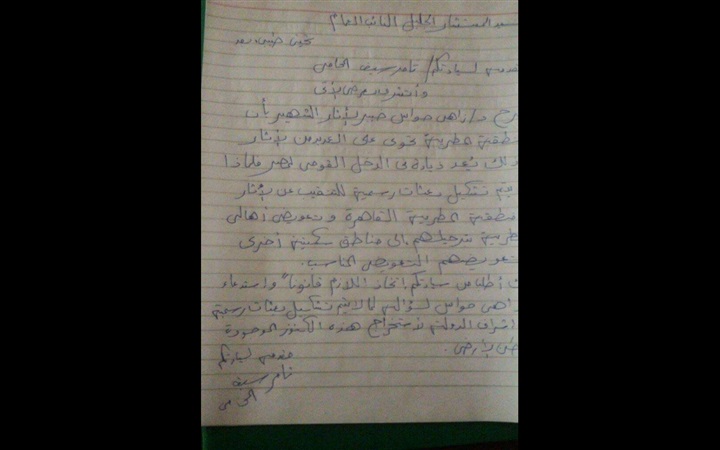 السيد المستشار الجليل النائب العام
تحية طيبة وبعد
مقدمه لسيادتكم / تامر سيف المحامى
وأتشرف بعرض الآتى
د/ زاهى حواس خبير الآثار الشهير بأن
منطقة المطرية تحوى على العديد من الآثار
ذلك يعد زيادة فى الدخل القومى لمصر فلماذا
يتم تشكيل بعثات رسمية للتنقيب عن الآثار
منطقة المطرية القاهرة وتعويض أهالى
المطرية بترحيلهم الى مناطق سكنية أخرى
وتعويضهم التعويض المناسب.
أطلب من سيادتكم إتخاذ اللازم قانونا" واستدعاء
زاهى حواس لسؤاله لما لا يتم تشكيل بعثات رسمية
اشراف الدولة لأستخراج هذه الكنوز الموجودة
باطن الأرض.
مقدمه لسيادتكم
تامر سيف
المحامى